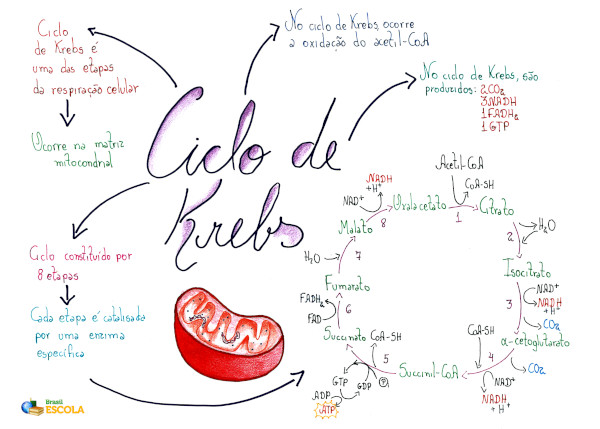 Ciclo
de Krebs é
uma das etapas
da respiração celular
Ocorre na matriz
mitocondrial
No ciclo de Krebs, ocorre
a oxidação do acetil-CoA
No ciclo de Krebs, são
produzidos:
2CO₂
3NADH
1FADH₂
1GTP
Ciclo de
Krebs
Ciclo constituído por
8 etapas
Cada etapa é catalisada
por uma enzima
específica
Acetil-CoA
CoA-SH
Oxalacetato
1
Citrato
2
H₂O
Isocitrato
3
NAD⁺
NADH
+
H⁺
CO₂
α-cetoglutarato
CoA-SH
4
CO₂
NAD⁺
NADH
+ H⁺
Succinil-CoA
5
CoA-SH
P
GTP
GDP
ADP
ATP
Succinato
6
FAD
FADH₂
Fumarato
7
H₂O
Malato
8
NAD⁺
NADH
+ H⁺
Brasil
ESCOLA